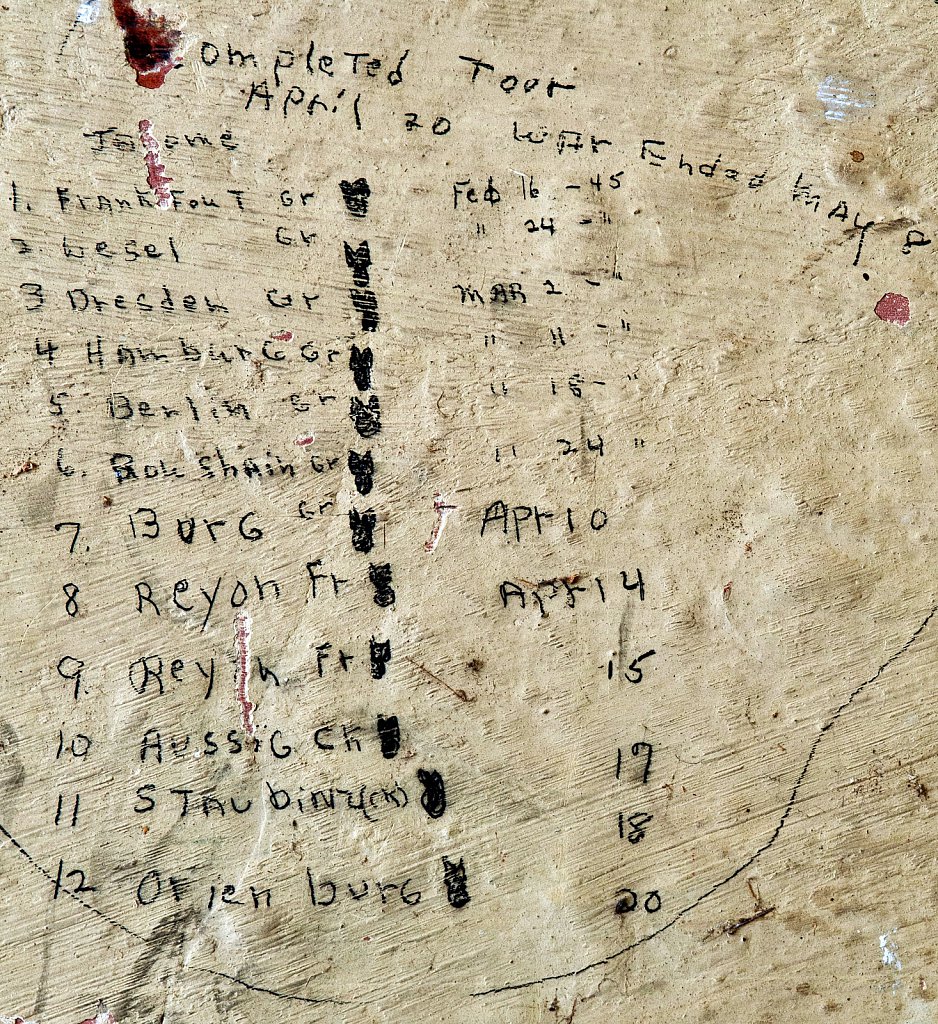 ompleTed Toor
April 20 WAr Ended MAy 8
1. FrAnkFouT Gr Feb 16 - 45
2 Wesel Gr " 24 - "
3 Dresden Gr MAR 2 - "
4 HAmburG Gr " 11 - "
5. Berlin Gr " 18 - "
6. Gr " 24 "
7. BurG Gr Apr 10
8 Reyon Fr Apr 14
9. Reyon Fr 15
10 AussiG Ch 17
11 STrAubing 18
12 Orien burG 20